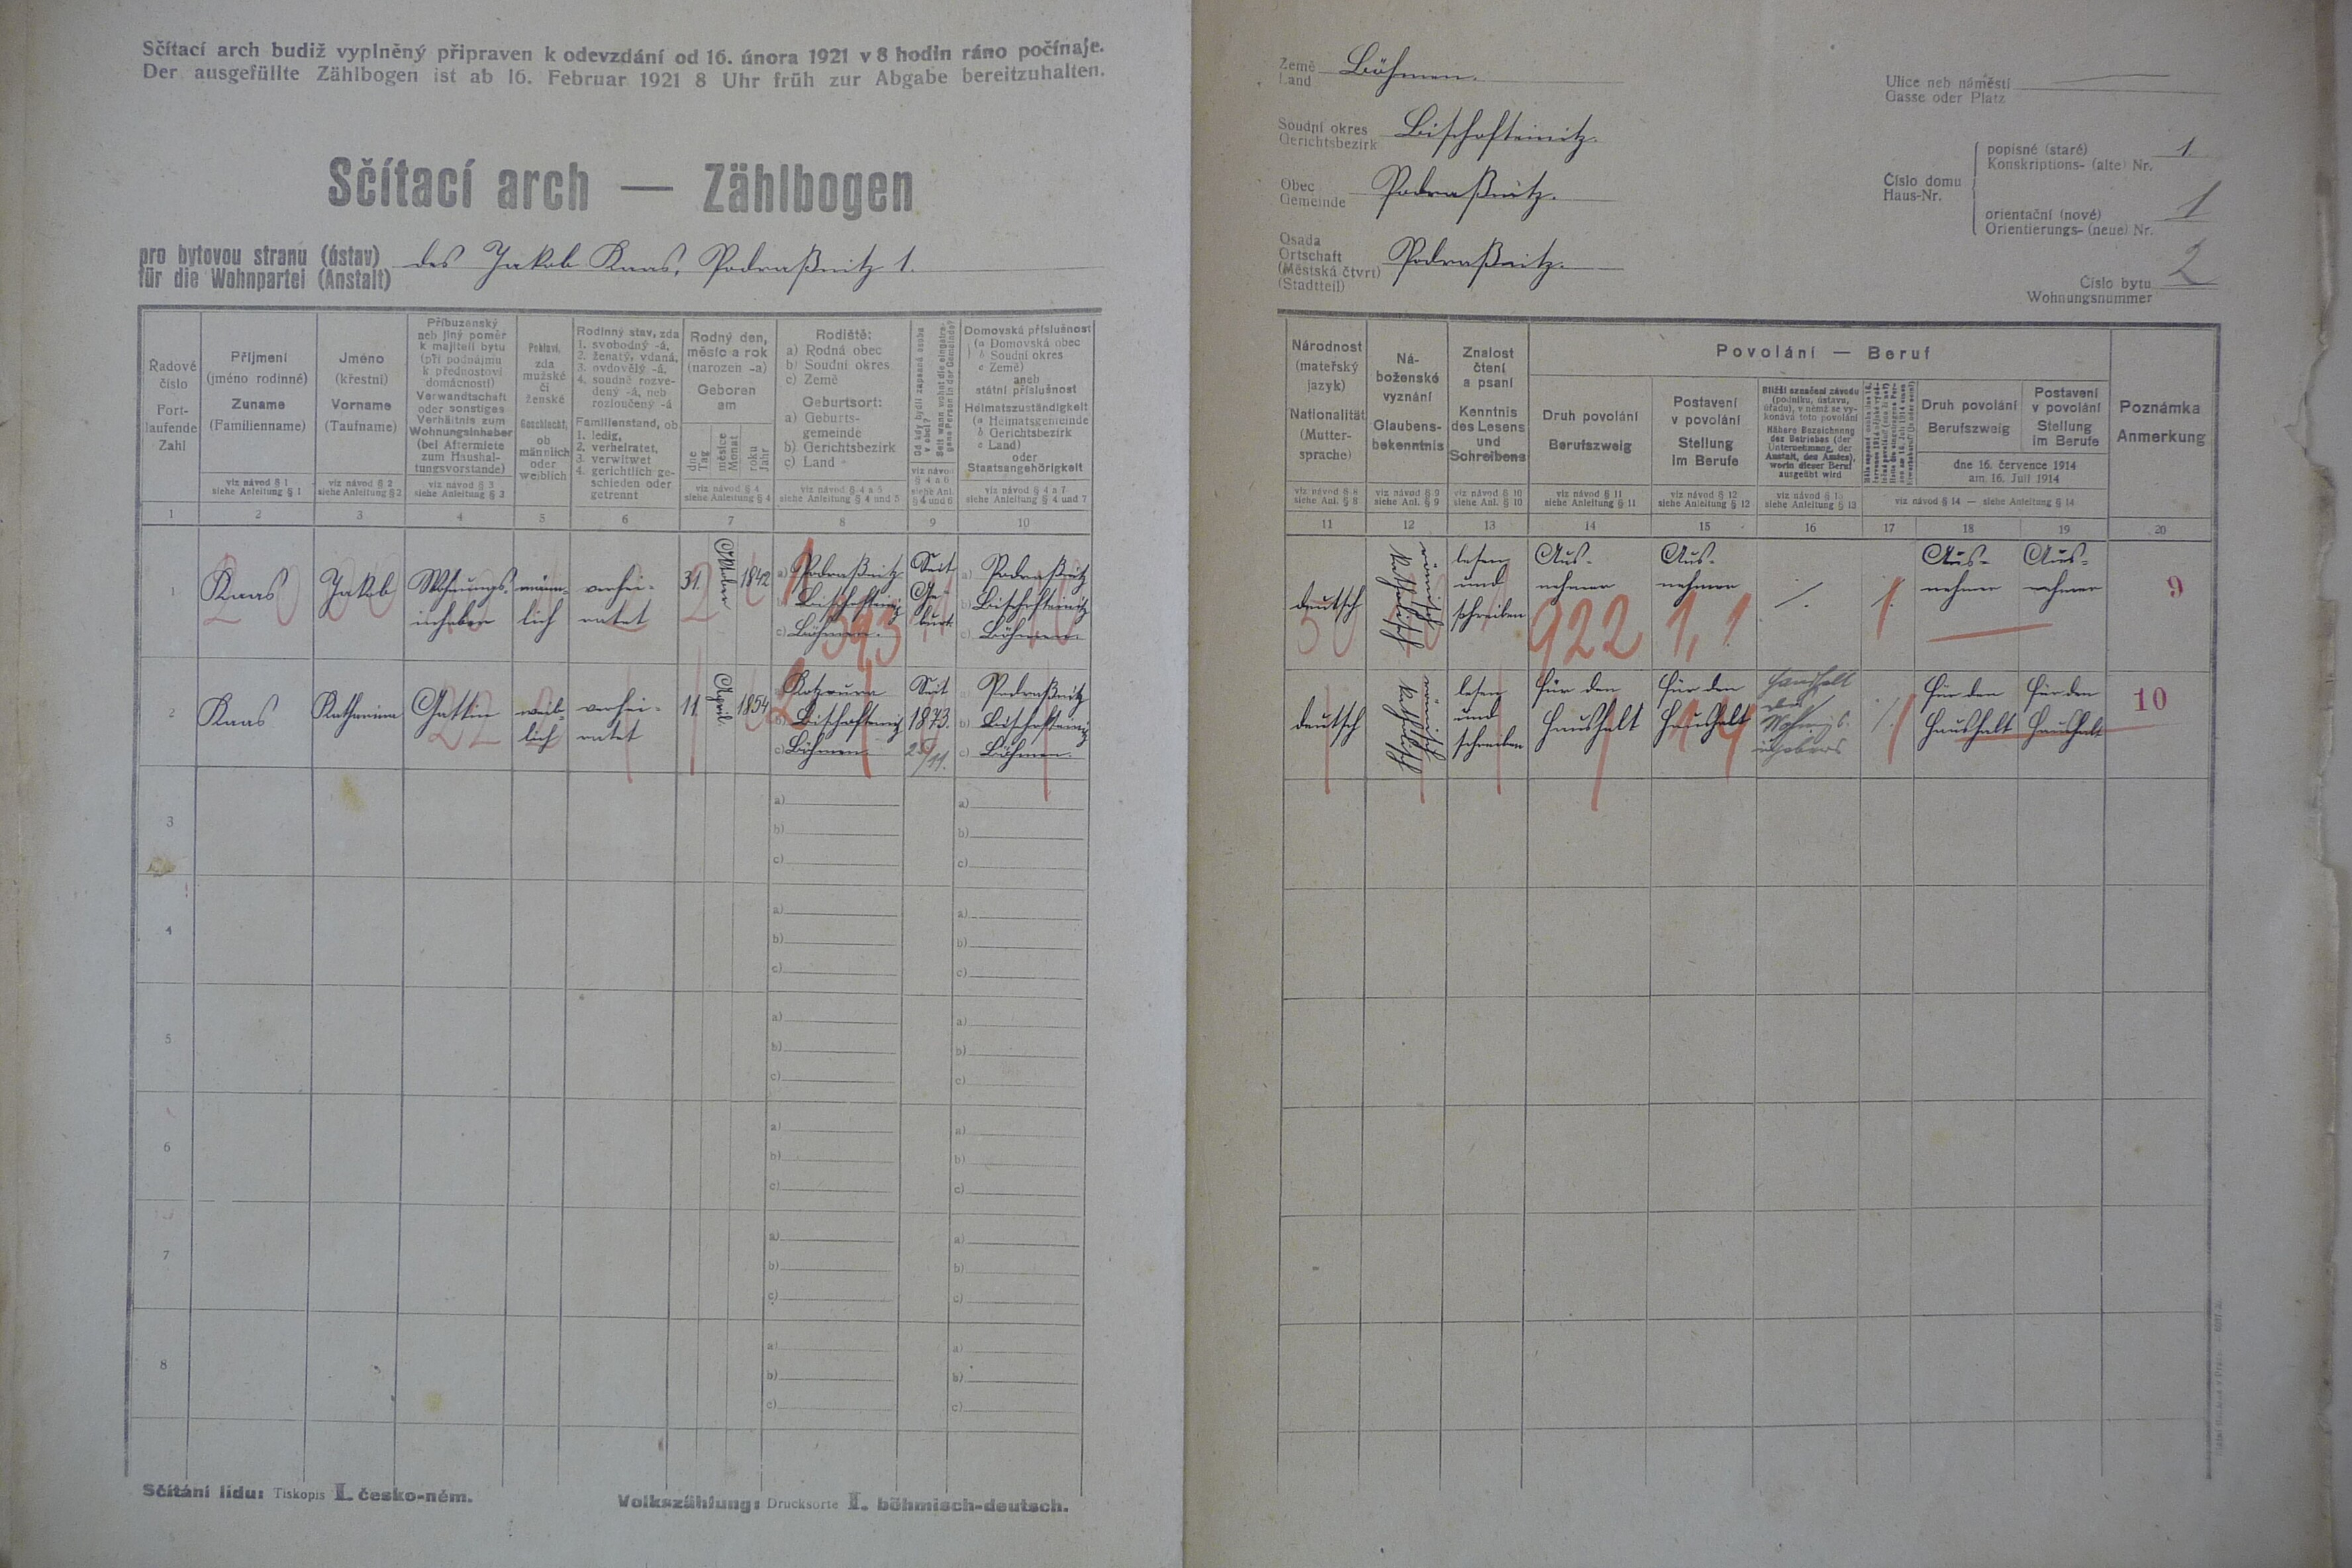 Sčítací arch budiž vyplněný připraven k odevzdání od 16. února 1921 v 8 hodin ráno počínaje.
Der ausgefüllte Zählbogen ist ab 16. Februar 1921 8 Uhr früh zur Abgabe bereitzuhalten.
Sčítací arch — Zählbogen
pro bytovou stranu (ústav)
für die Wohnpartei (Anstalt)
des Jakob Kaas, Podraßnitz 1.
Řadové číslo
Fortlaufende Zahl
1
Příjmení
(jméno rodinné)
Zuname
(Familienname)
viz návod § 1
siehe Anleitung § 1
2
Jméno
(křestní)
Vorname
(Taufname)
viz návod § 2
siehe Anleitung § 2
3
Příbuzenský
neb jiný poměr
k majiteli bytu
(při podnájmu
k přednostovi
domácnosti)
Verwandtschaft
oder sonstiges
Verhältnis zum
Wohnungsinhaber
(bei Aftermiete
zum Haushal-
tungsvorstande)
viz návod § 3
siehe Anleitung § 3
4
Pohlaví,
zda
mužské
či
ženské
Geschlecht,
ob
männlich
oder
weiblich
5
Rodinný stav, zda
1. svobodný -á,
2. ženatý, vdaná,
3. ovdovělý -á,
4. soudně rozve-
dený -á, neb
rozloučený -á
Familienstand, ob
1. ledig,
2. verheiratet,
3. verwitwet
4. gerichtlich ge-
schieden oder
getrennt
6
Rodný den,
měsíc a rok
(narozen -a)
Geboren
am
dne
Tag
měsíce
Monat
roku
Jahr
viz návod § 4
siehe Anleitung § 4
7
Rodiště:
a) Rodná obec
b) Soudní okres
c) Země
Geburtsort:
a) Geburts-
gemeinde
b) Gerichtsbezirk
c) Land
viz návod § 4 a 5
siehe Anleitung § 4 und 5
8
Od kdy bydlí zapsaná osoba
v obci?
Seit wann wohnt die eingetra-
gene Person in der Gemeinde?
viz návod
§ 4 a 6
siehe Anl.
§ 4 und 6
9
Domovská příslušnost
(a Domovská obec
b Soudní okres
c Země)
aneb
státní příslušnost
Heimatszuständigkeit
(a Heimatsgemeinde
b Gerichtsbezirk
c Land)
oder
Staatsangehörigkeit
viz návod § 4 a 7
siehe Anleitung § 4 und 7
10
1
Kaas
Jakob
Wohnungs-
inhaber
männ-
lich
verhei-
ratet
31
Oktober
1842
a) Podraßnitz
b) Bischofteinitz
c) Böhmen.
Seit
Ge-
burt.
a) Podraßnitz
b) Bischofteinitz
c) Böhmen.
393
2
Kaas
Katharina
Gattin
weib-
lich
verhei-
ratet
11
April
1854
Bischofteinitz
c) Böhmen
Seit
1873.
a) Podraßnitz
b) Bischofteinitz
c) Böhmen.
3
a)
b)
c)
a)
b)
c)
4
a)
b)
c)
a)
b)
c)
5
a)
b)
c)
a)
b)
c)
6
a)
b)
c)
a)
b)
c)
7
a)
b)
c)
a)
b)
c)
8
a)
b)
c)
a)
b)
c)
Sčítání lidu: Tiskopis I. česko-něm.
Volkszählung: Drucksorte I. böhmisch-deutsch.
Země
Land
Böhmen.
Soudní okres
Gerichtsbezirk
Bischofteinitz.
Obec
Gemeinde
Podraßnitz.
Osada
Ortschaft
(Městská čtvrt)
(Stadtteil)
Podraßnitz.
Ulice neb náměstí
Gasse oder Platz
Číslo domu
Haus-Nr.
popisné (staré)
Konskriptions- (alte) Nr.
1.
orientační (nové)
Orientierungs- (neue) Nr.
1
Číslo bytu
Wohnungsnummer
2
Národnost
(mateřský
jazyk)
Nationalität
(Mutter-
sprache)
viz návod § 8
siehe Anl. § 8
11
Ná-
boženské
vyznání
Glaubens-
bekenntnis
viz návod § 9
siehe Anl. § 9
12
Znalost
čtení
a psaní
Kenntnis
des Lesens
und
Schreibens
viz návod § 10
siehe Anl. § 10
13
Povolání — Beruf
Druh povolání
Berufszweig
viz návod § 11
siehe Anleitung § 11
14
Postavení
v povolání
Stellung
im Berufe
viz návod § 12
siehe Anleitung § 12
15
Bližší označení závodu
(podniku, ústavu,
úřadu), v němž se vy-
konává toto povolání
Nähere Bezeichnung
des Betriebes (der
Unternehmung, der
Anstalt, des Amtes),
worin dieser Beruf
ausgeübt wird
viz návod § 13
siehe Anleitung § 13
16
17
Druh povolání
Berufszweig
18
Postavení
v povolání
Stellung
im Berufe
19
dne 16. července 1914
am 16. Juli 1914
viz návod § 14 — siehe Anleitung § 14
Poznámka
Anmerkung
20
deutsch
römisch
katholisch
lesen
und
schreiben
Aus-
nehmer
922
Aus-
nehmer
1,1
Aus-
nehmer
Aus-
nehmer
9
deutsch
römisch
katholisch
lesen
und
schreiben
für den
Haushalt
für den
Haushalt
Haushalt
des
Wohnungs-
inhabers
für den
Haushalt
für den
Haushalt
10